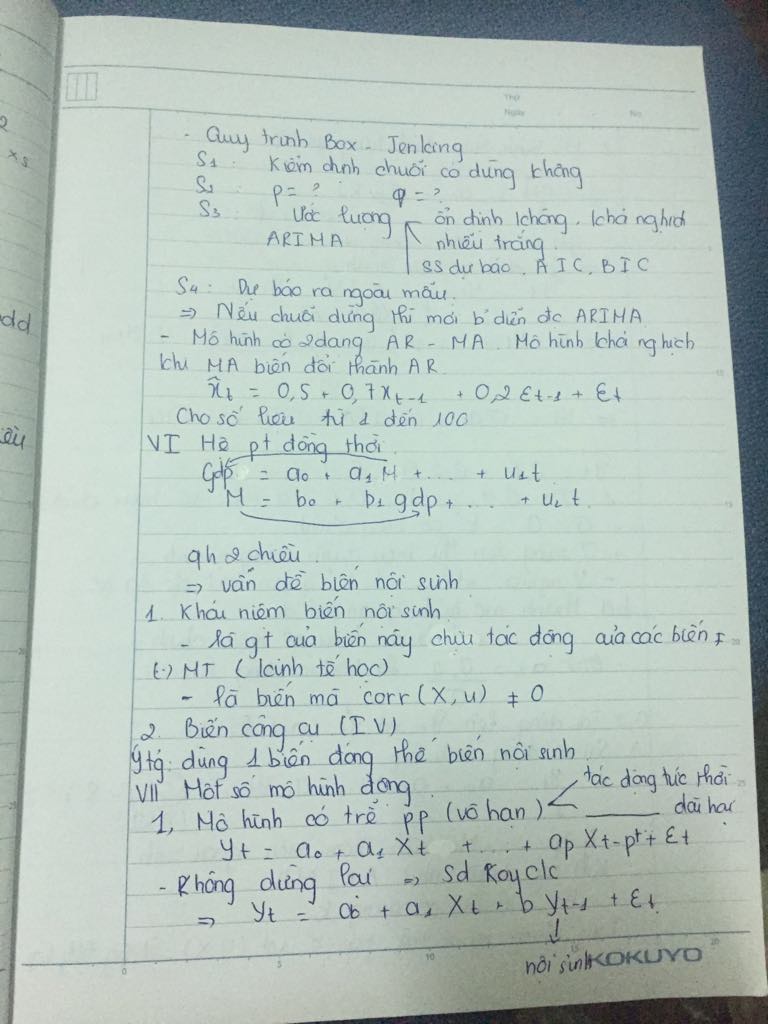 Thứ
Ngày No.
- Quy trình Box - Jenking
S1: Kiểm định chuỗi có dừng không
S2 p = ? q = ?
S3 Ước lượng ổn định không, khả nghịch
ARIMA nhiễu trắng
SS dự báo, AIC, BIC
S4: Dự báo ra ngoài mẫu
⇒ Nếu chuỗi dừng thì mới b' diễn đc ARIMA
- Mô hình có 2 dạng AR - MA. Mô hình khả nghịch
khi MA biến đổi thành AR
x̂t = 0,5 + 0,7xt-1 + 0,2 εt-1 + εt
Cho số liệu từ 1 đến 100
VI Hệ pt đồng thời
Gdp = a0 + a1 M + ... + u1t
M = b0 + b1 gdp + ... + u2 t
qh 2 chiều
⇒ vấn đề biến nội sinh
1. Khái niệm biến nội sinh
- là gt của biến này chịu tác động của các biến ≠
(-) MT (kinh tế học)
- là biến mà corr(X,u) ≠ 0
2. Biến công cụ (IV)
Ý tg: dùng 1 biến đóng thế biến nội sinh
VII Một số mô hình động
1, Mô hình có trễ pp (vô hạn) < tác động tức thời
______ dài hạn
yt = a0 + a1 Xt + ... + ap Xt-p + εt
- Không dừng lại ⇒ Sd Koyck
⇒ yt = a0 + a1 Xt + b yt-1 + εt
↓
nội sinh KOKUYO